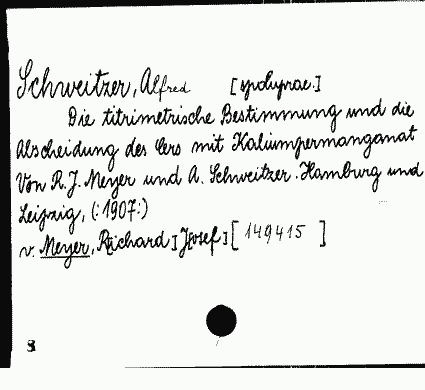 Schweitzer, Alfred [spoluprac.]
Die titrimetrische Bestimmung und die
Abscheidung des Cers mit Kaliumpermanganat
Von R. J. Meyer und A. Schweitzer. Hamburg und
Leipzig, (:1907:)
v. Meyer, R[ichard] J[osef] [149415]